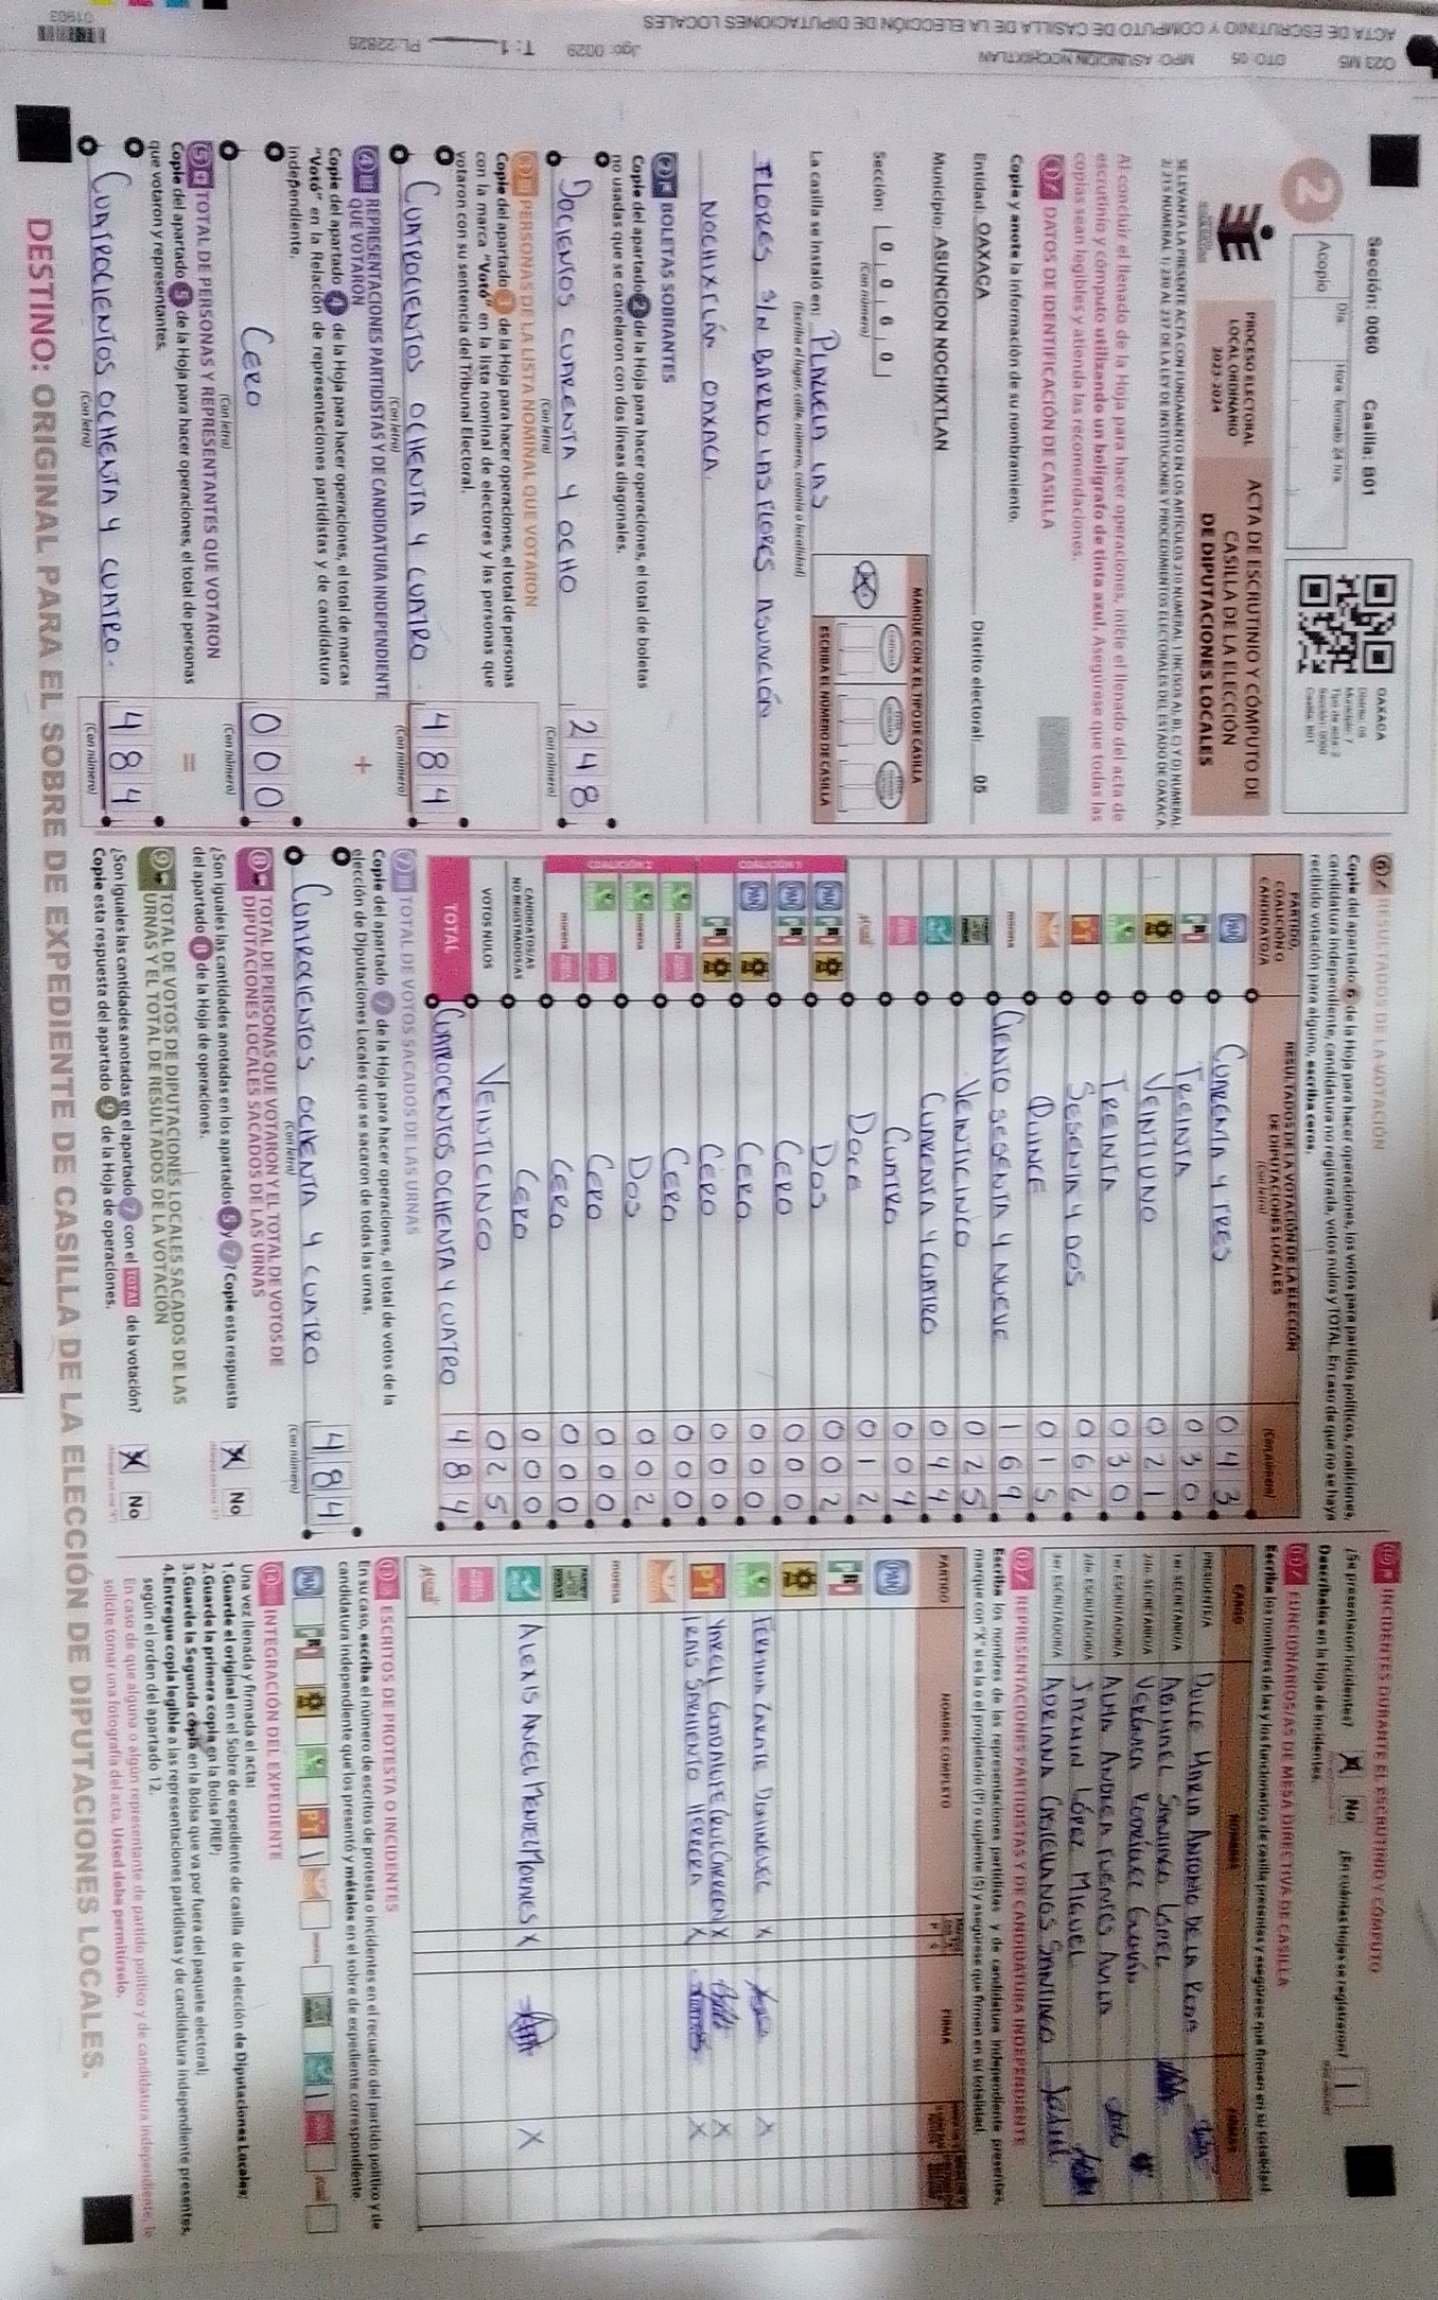 Sección: 0060 Casilla: B01
Día Hora formato 24 hrs
Acopio
OAXACA
Distrito: 05
Municipio: 7
Tipo de acta: 2
Sección: 0060
Casilla: B01
2
PROCESO ELECTORAL
LOCAL ORDINARIO
2023-2024
ACTA DE ESCRUTINIO Y CÓMPUTO DE
CASILLA DE LA ELECCIÓN
DE DIPUTACIONES LOCALES
Al concluir el llenado de la Hoja para hacer operaciones, inicie el llenado del acta de
escrutinio y cómputo utilizando un bolígrafo de tinta azul. Asegúrese que todas las
copias sean legibles y atienda las recomendaciones.
1 DATOS DE IDENTIFICACIÓN DE CASILLA
Copie y anote la información de su nombramiento.
Entidad: OAXACA Distrito electoral: 05
Municipio: ASUNCION NOCHIXTLAN
Sección: 0 0 6 0
(Con número)
MARQUE CON X EL TIPO DE CASILLA
ESCRIBA EL NÚMERO DE CASILLA
La casilla se instaló en: PLAZUELA LAS
(Escriba el lugar, calle, número, colonia o localidad)
FLORES S/N BARRIO LAS FLORES ASUNCIÓN
NOCHIXTLÁN OAXACA.
2 BOLETAS SOBRANTES
Copie del apartado 2 de la Hoja para hacer operaciones, el total de boletas
no usadas que se cancelaron con dos líneas diagonales.
DOCIENTOS CUARENTA Y OCHO 248
(Con letra) (Con número)
3 PERSONAS DE LA LISTA NOMINAL QUE VOTARON
Copie del apartado 3 de la Hoja para hacer operaciones, el total de personas
con la marca "Votó" en la lista nominal de electores y las personas que
votaron con su sentencia del Tribunal Electoral.
CUATROCIENTOS OCHENTA Y CUATRO. 484
(Con letra) (Con número)
4 REPRESENTACIONES PARTIDISTAS Y DE CANDIDATURA INDEPENDIENTE
QUE VOTARON +
Copie del apartado 4 de la Hoja para hacer operaciones, el total de marcas
"Votó" en la Relación de representaciones partidistas y de candidatura
independiente.
CERO 000
(Con letra) (Con número)
5 TOTAL DE PERSONAS Y REPRESENTANTES QUE VOTARON =
Copie del apartado 5 de la Hoja para hacer operaciones, el total de personas
que votaron y representantes.
CUATROCIENTOS OCHENTA Y CUATRO. 484
(Con letra) (Con número)
6 RESULTADOS DE LA VOTACIÓN
Copie del apartado 6 de la Hoja para hacer operaciones, los votos para partidos políticos, coaliciones,
candidatura independiente, candidatura no registrada, votos nulos y TOTAL. En caso de que no se haya
recibido votación para alguno, escriba ceros.
PARTIDO, COALICIÓN O CANDIDATO/A
RESULTADOS DE LA VOTACIÓN DE LA ELECCIÓN
DE DIPUTACIONES LOCALES
(Con letra) (Con número)
PAN CUARENTA Y TRES 043
PRI TREINTA 030
PRD VEINTIUNO 021
TREINTA 030
PT SESENTA Y DOS 062
QUINCE 015
morena CIENTO SESENTA Y NUEVE 169
VEINTICINCO 025
CUARENTA Y CUATRO 044
CUATRO 004
DOCE 012
COALICIÓN 1
DOS 002
CERO 000
CERO 000
CERO 000
COALICIÓN 2
morena CERO 000
morena DOS 002
CERO 000
morena CERO 000
CANDIDATOS/AS NO REGISTRADOS/AS CERO 000
VOTOS NULOS VEINTICINCO 025
TOTAL CUATROCIENTOS OCHENTA Y CUATRO 484
7 TOTAL DE VOTOS SACADOS DE LAS URNAS
Copie del apartado 7 de la Hoja para hacer operaciones, el total de votos de la
elección de Diputaciones Locales que se sacaron de todas las urnas.
CUATROCIENTOS OCHENTA Y CUATRO 484
(Con letra) (Con número)
8 TOTAL DE PERSONAS QUE VOTARON Y EL TOTAL DE VOTOS DE
DIPUTACIONES LOCALES SACADOS DE LAS URNAS
¿Son iguales las cantidades anotadas en los apartados 5 y 7? Copie esta respuesta
del apartado 8 de la Hoja de operaciones. X No
9 TOTAL DE VOTOS DE DIPUTACIONES LOCALES SACADOS DE LAS
URNAS Y EL TOTAL DE RESULTADOS DE LA VOTACIÓN
¿Son iguales las cantidades anotadas en el apartado 7 con el TOTAL de la votación?
Copie esta respuesta del apartado 9 de la Hoja de operaciones. X No
10 INCIDENTES DURANTE EL ESCRUTINIO Y CÓMPUTO
¿Se presentaron incidentes? X No ¿En cuántas Hojas se registraron? 1
Descríbalos en la Hoja de Incidentes.
11 FUNCIONARIOS/AS DE MESA DIRECTIVA DE CASILLA
Escriba los nombres de las y los funcionarios de casilla presentes y asegúrese que firmen en su totalidad.
CARGO NOMBRE FIRMAS
PRESIDENTE/A DULCE MARIA ANTONIO DE LA ROSA
1er. SECRETARIO/A
2do. SECRETARIO/A VERÓNICA RODRÍGUEZ
1er. ESCRUTADOR/A ALMA ANDREA FUENTES AVILA
2do. ESCRUTADOR/A LÓPEZ MIGUEL
3er. ESCRUTADOR/A ADRIANA CASTELLANOS SANTIAGO
12 REPRESENTACIONES PARTIDISTAS Y DE CANDIDATURA INDEPENDIENTE
Escriba los nombres de las representaciones partidistas y de candidatura independiente presentes,
marque con "X" si es la o el propietario (P) o suplente (S) y asegúrese que firmen en su totalidad.
PARTIDO NOMBRE COMPLETO FIRMA
PAN
PRI
PRD
FERMINA ZARATE DOMINGUEZ X X
PT YARELI GUADALUPE CRUZ CARREÑO X X
LENIS SARMIENTO HERRERA X X
morena
ALEXIS ANGEL MENDEZ MORALES X X
13 ESCRITOS DE PROTESTA O INCIDENTES
En su caso, escriba el número de escritos de protesta o incidentes en el recuadro del partido político y de
candidatura independiente que los presentó y métalos en el sobre de expediente correspondiente.
14 INTEGRACIÓN DEL EXPEDIENTE
Una vez llenada y firmada el acta:
1. Guarde el original en el Sobre de expediente de casilla de la elección de Diputaciones Locales;
2. Guarde la primera copia en la Bolsa PREP;
3. Guarde la Segunda copia en la Bolsa que va por fuera del paquete electoral;
4. Entregue copia legible a las representaciones partidistas y de candidatura independiente presentes,
según el orden del apartado 12.
En caso de que alguna o algún representante de partido político y de candidatura independiente, le
solicite tomar una fotografía del acta, Usted debe permitírselo.
DESTINO: ORIGINAL PARA EL SOBRE DE EXPEDIENTE DE CASILLA DE LA ELECCIÓN DE DIPUTACIONES LOCALES.
023 MS DTO: 05 MPO: ASUNCION NOCHIXTLAN
ACTA DE ESCRUTINIO Y COMPUTO DE CASILLA DE LA ELECCIÓN DE DIPUTACIONES LOCALES
Jgo: 0029 T: 1 PL: 22825
01903